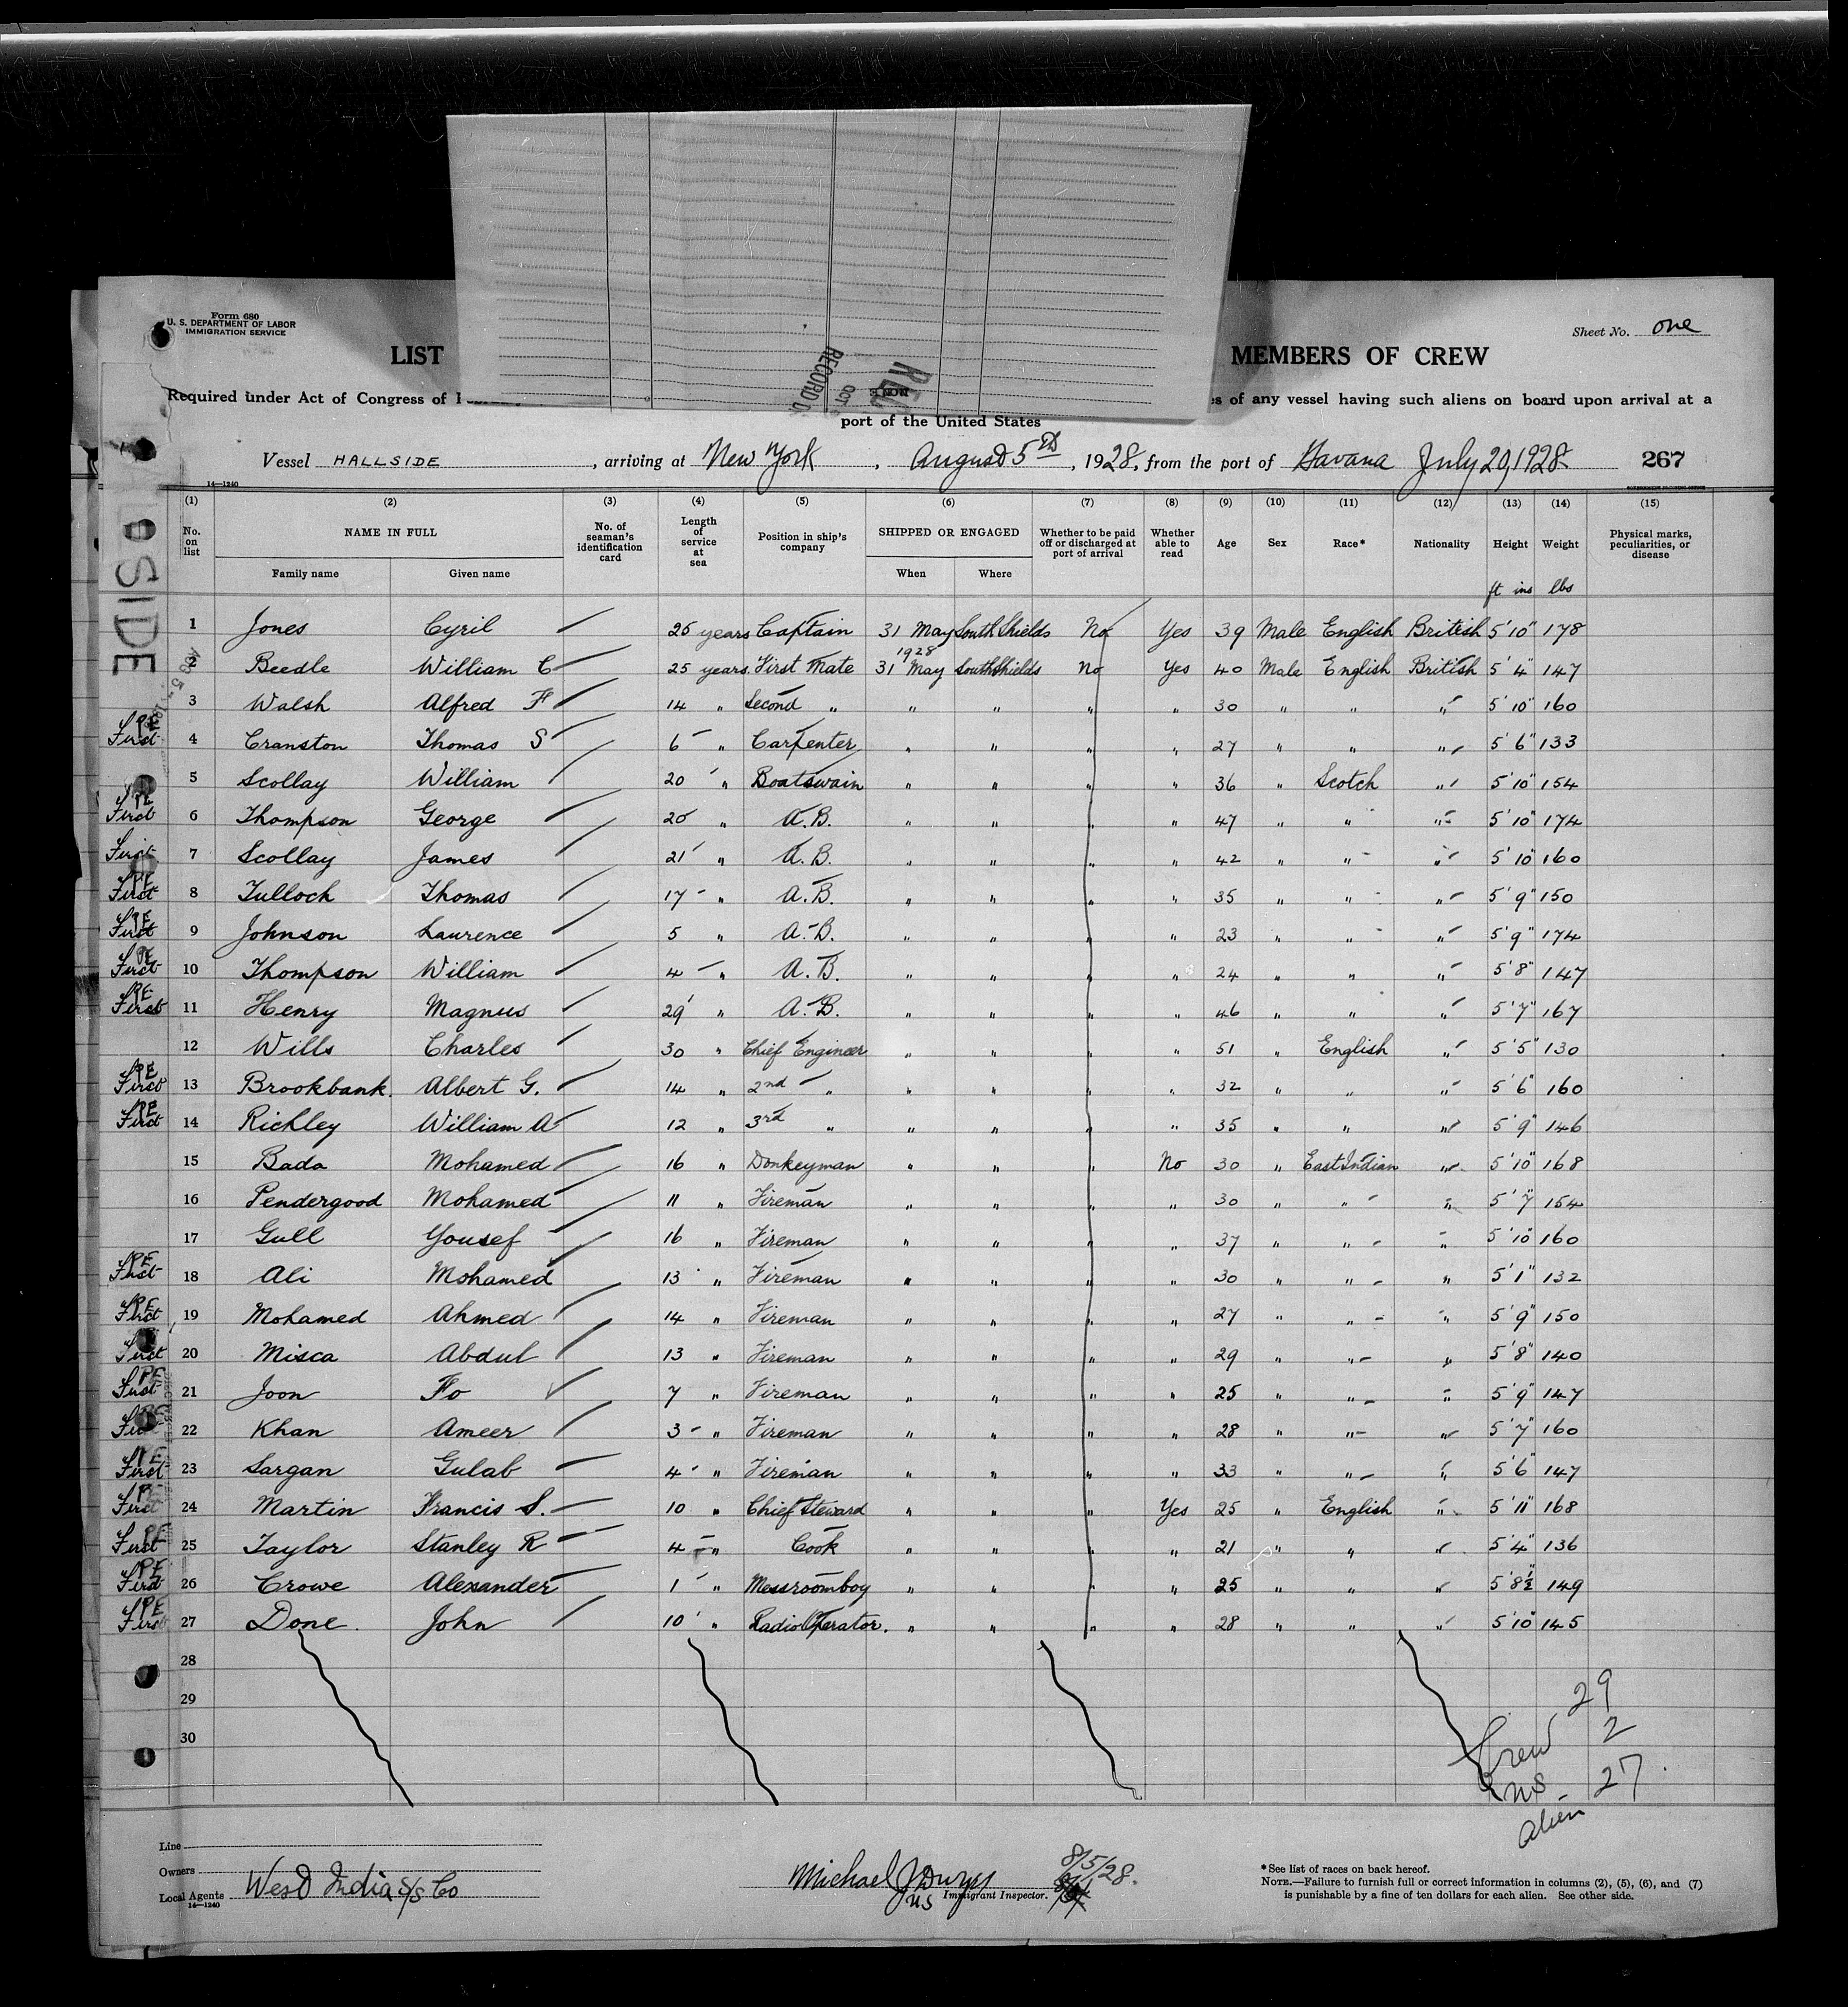 Form 680
U. S. DEPARTMENT OF LABOR
IMMIGRATION SERVICE
Sheet No. one
LIST MEMBERS OF CREW
RECORD
OCT
REC
Required under Act of Congress of of any vessel having such aliens on board upon arrival at a
port of the United States
Vessel HALLSIDE, arriving at New York, August 5th, 1928, from the port of Havana July 20, 1928 267
14—1240
(1) (2) (3) (4) (5) (6) (7) (8) (9) (10) (11) (12) (13) (14) (15)
No. on list NAME IN FULL Family name Given name No. of seaman's identification card Length of service at sea Position in ship's company SHIPPED OR ENGAGED When Where Whether to be paid off or discharged at port of arrival Whether able to read Age Sex Race* Nationality Height Weight Physical marks, peculiarities, or disease
ft ins lbs
SIDE
1 Jones Cyril 25 years Captain 31 May South Shields No Yes 39 Male English British 5' 10" 178
1928
2 Beedle William C 25 years. First Mate 31 May South Shields No Yes 40 Male English British 5' 4" 147
3 Walsh Alfred F 14 " Second " " " " " 30 " " " 5' 10" 160
PE First 4 Cranston Thomas S 6 " Carpenter " " " " 27 " " " 5' 6" 133
5 Scollay William 20 " Boatswain " " " " 36 " Scotch " 5' 10" 154
PE First 6 Thompson George 20 " A.B. " " " " 47 " " " 5' 10" 174
First 7 Scollay James 21 " A.B. " " " " 42 " " " 5' 10" 160
PE First 8 Tulloch Thomas 17 " A.B. " " " " 35 " " " 5' 9" 150
PE First 9 Johnson Laurence 5 " A.B. " " " " 23 " " " 5' 9" 174
PE First 10 Thompson William 4 " A.B. " " " " 24 " " " 5' 8" 147
PE First 11 Henry Magnus 29 " A.B. " " " " 46 " " " 5' 7" 167
12 Wills Charles 30 " Chief Engineer " " " " 51 " English " 5' 5" 130
PE First 13 Brookbank. Albert G. 14 " 2nd " " " " " 32 " " " 5' 6" 160
PE First 14 Richley William A 12 " 3rd " " " " " 35 " " " 5' 9" 146
15 Bada Mohamed 16 " Donkeyman " " " No 30 " East Indian " 5' 10" 168
16 Pendergood Mohamed 11 " Fireman " " " " 30 " " " 5' 7" 154
17 Gull Yousef 16 " Fireman " " " " 37 " " " 5' 10" 160
PE First 18 Ali Mohamed 13 " Fireman " " " " 30 " " " 5' 1" 132
PE First 19 Mohamed Ahmed 14 " Fireman " " " " 27 " " " 5' 9" 150
First 20 Misca Abdul 13 " Fireman " " " " 29 " " " 5' 8" 140
PE First 21 Joon Fo 7 " Fireman " " " " 25 " " " 5' 9" 147
PE First 22 Khan Ameer 3 " Fireman " " " " 28 " " " 5' 7" 160
PE First 23 Sargan Gulab 4 " Fireman " " " " 33 " " " 5' 6" 147
PE First 24 Martin Francis S. 10 " Chief Steward " " " Yes 25 " English " 5' 11" 168
PE First 25 Taylor Stanley R 4 " Cook " " " " 21 " " " 5' 4" 136
PE First 26 Crowe Alexander 1 " Messroomboy " " " " 25 " " " 5' 8½" 149
PE First 27 Done. John 10 " Radio Operator. " " " " 28 " " " 5' 10" 145
28
29
30
Crew 29
US 2
alien 27
Line
Owners
Local Agents West India S/S Co
14—1240
Michael J Dwyer 8/5/28.
US Immigrant Inspector.
*See list of races on back hereof.
NOTE.—Failure to furnish full or correct information in columns (2), (5), (6), and (7)
is punishable by a fine of ten dollars for each alien. See other side.